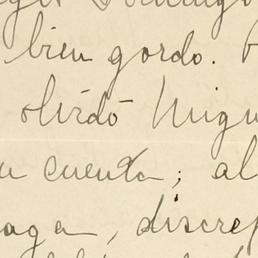 Domingo
bien gordo.
olvidó Migu
cuenta; al
aga, discrep